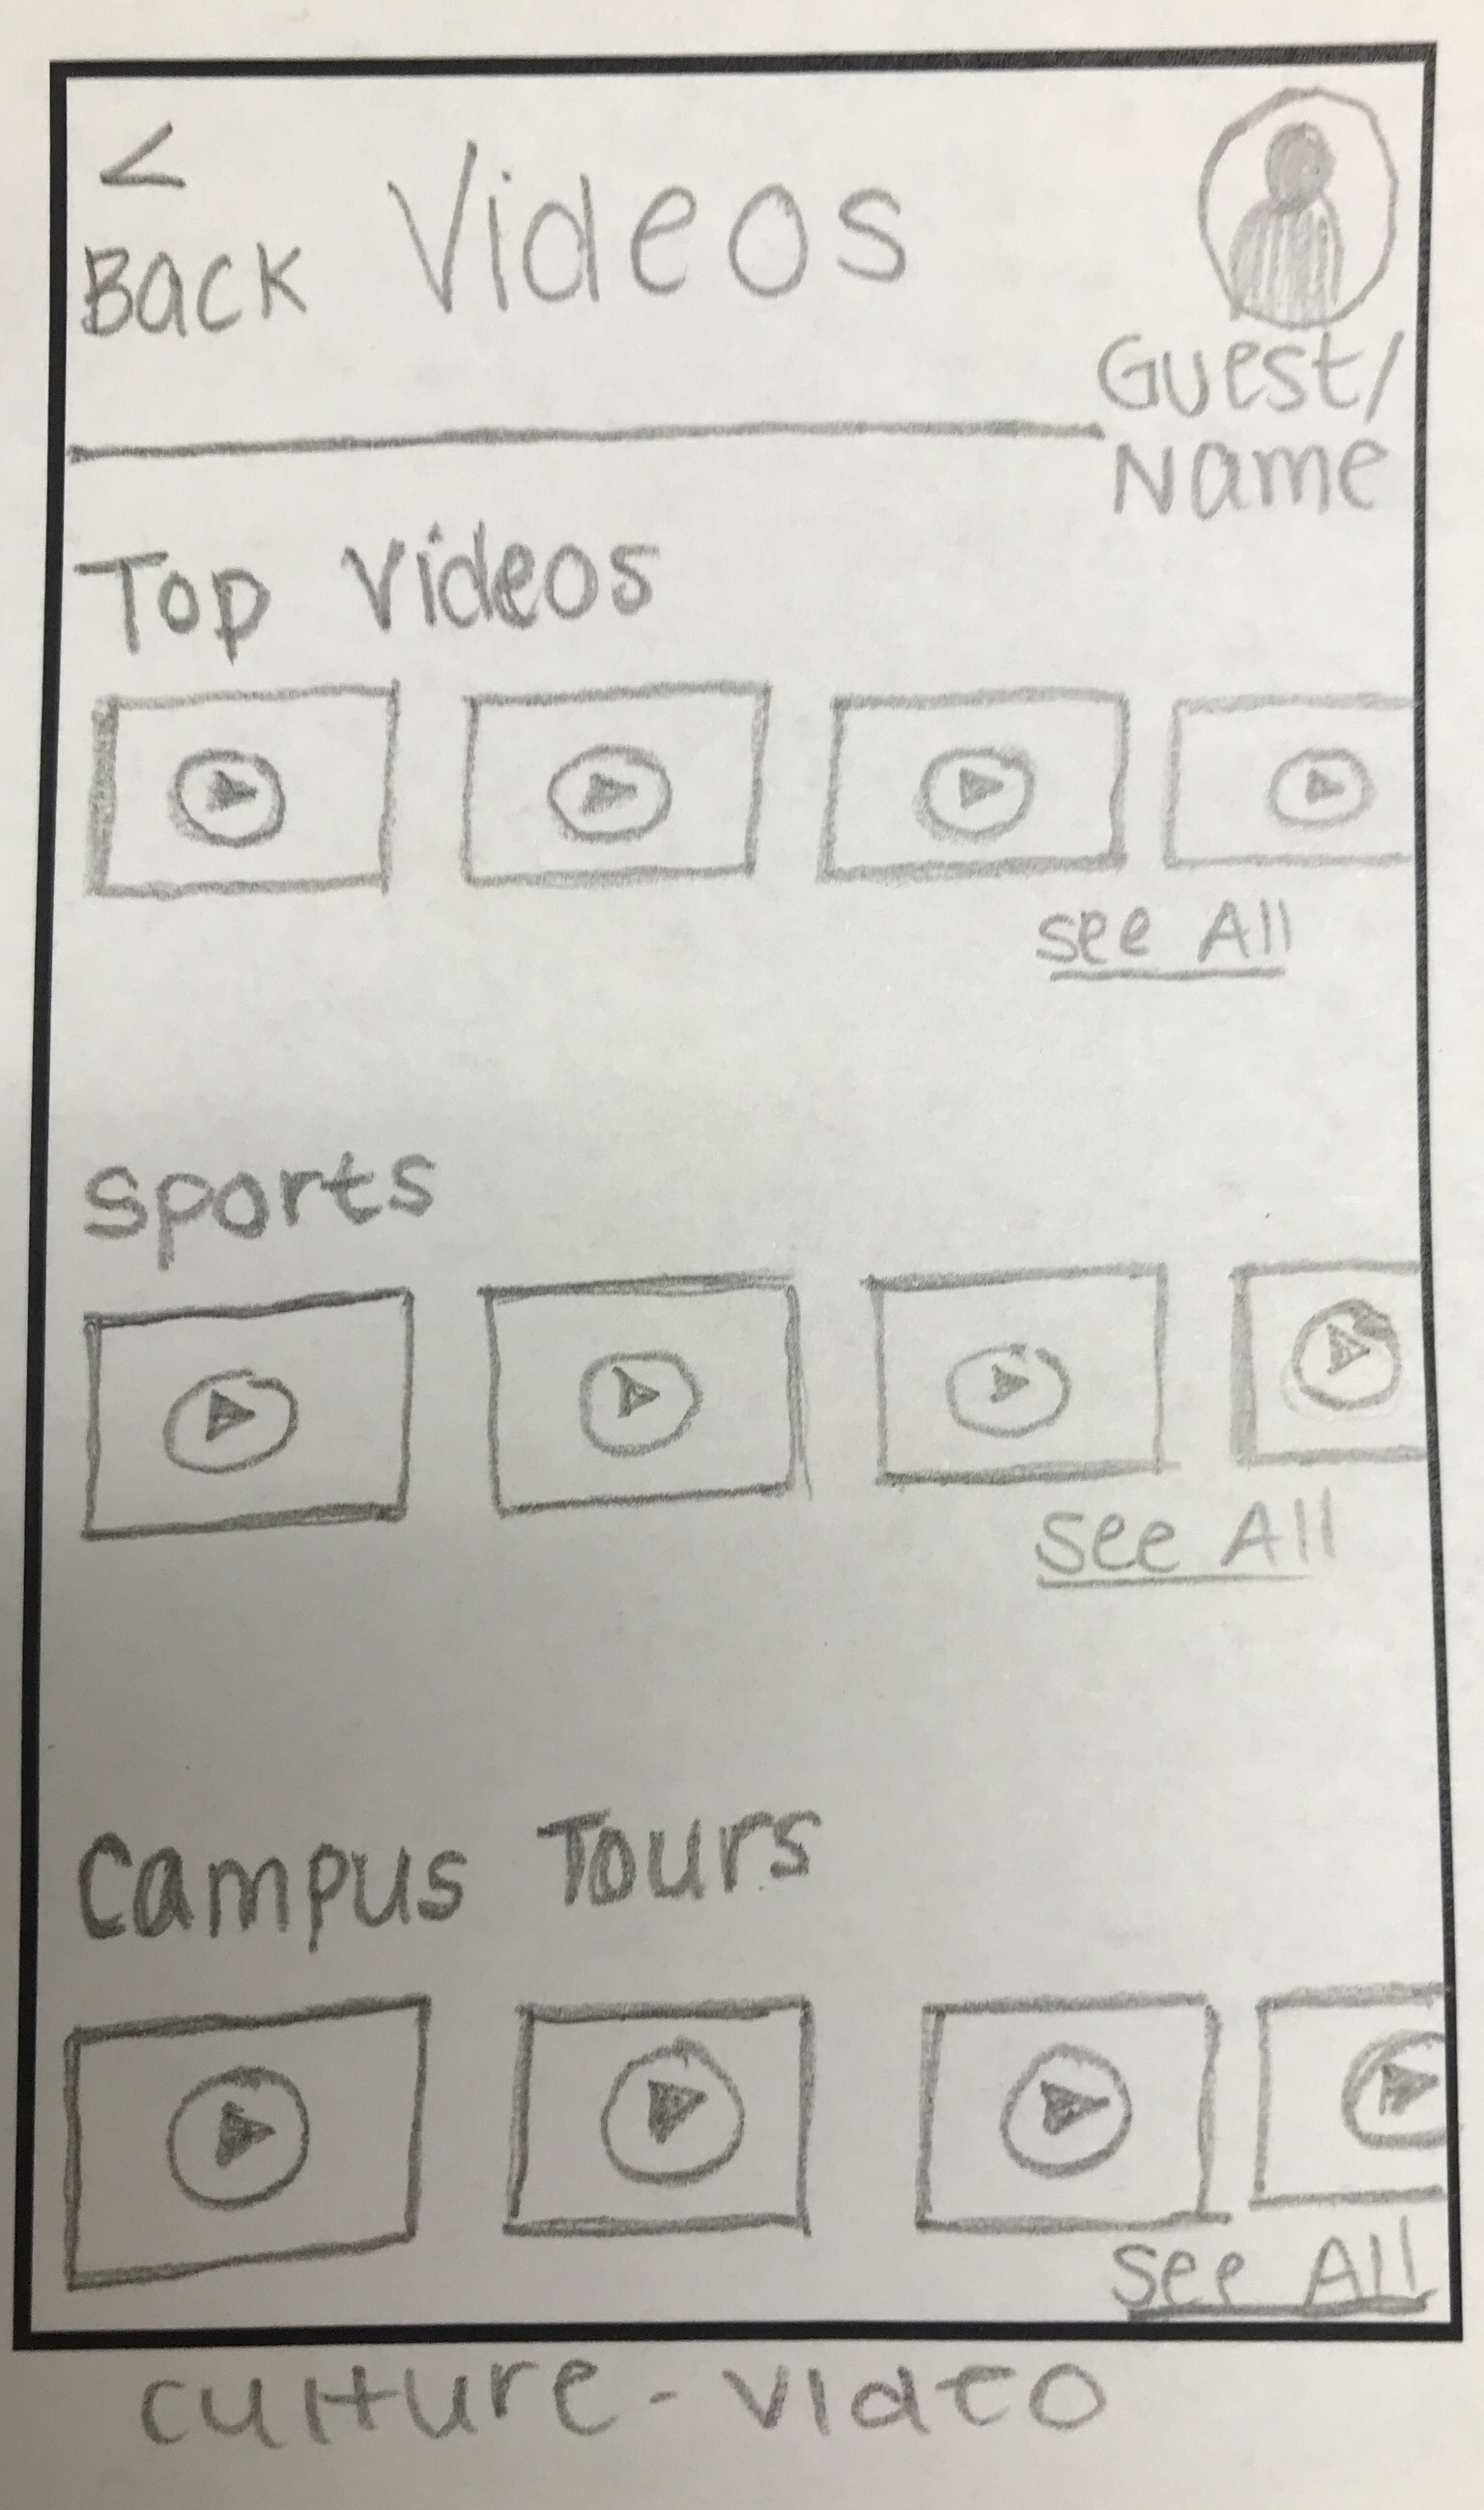 <
Back
Videos
Guest/
Name
Top Videos
see All
sports
see All
Campus Tours
see All
culture-video